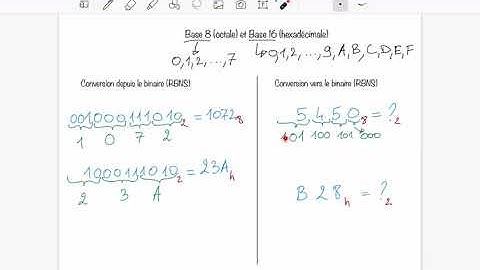 Base 8 (octale) et Base 16 (hexadécimale)
0,1,2,...,7
0,1,2,...,9,A,B,C,D,E,F
Conversion depuis le binaire (RBNS)
001000111010₂ = 1072₈
1 0 7 2
1000111010₂ = 23Aₕ
2 3 A
Conversion vers le binaire (RBNS)
5450₈ = ?₂
101 100 101 000
B28ₕ = ?₂